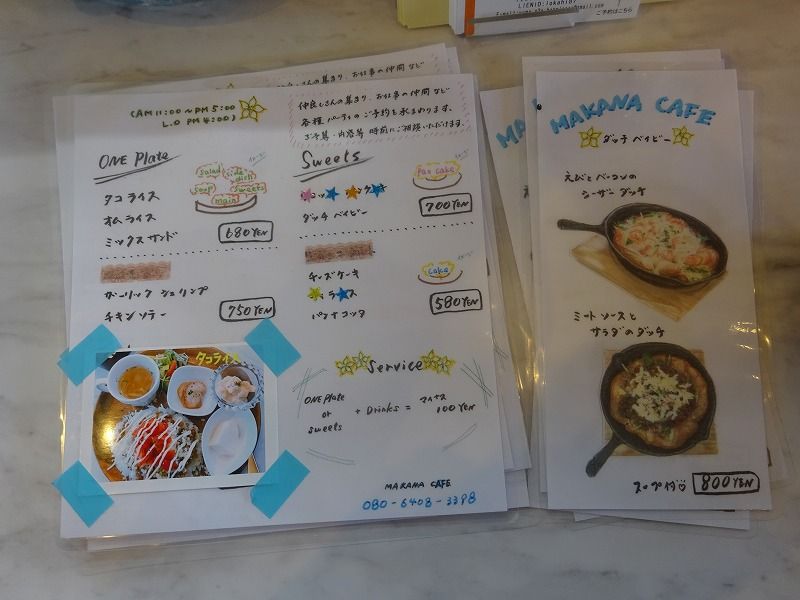 LIENID:
ご予約はこちら
(AM11:00~PM5:00
L.O PM4:00)
仲良しさんの集まり、お仕事の仲間など
仲良しさんの集まり、お仕事の仲間など
各種パーティのご予約も承ります。
ご予算・内容等 時前にご相談いただけます。
ONE Plate
salad
side dish
soup
main
sweets
タコライス
オムライス
ミックスサンド
680YEN
ガーリックシュリンプ
チキンソテー
750YEN
タコライス
Sweets
Pan cake
ダッチベイビー
700YEN
チーズケーキ
cake
パンナコッタ
580YEN
Service
ONE Plate
or
Sweets
+ Drinks =
マイナス
100YEN
MAKANA CAFE
080-6408-3398
MAKANA CAFE
ダッチベイビー
えびとベーコンの
シーザーダッチ
ミートソースと
サラダのダッチ
スープ付♡
800YEN